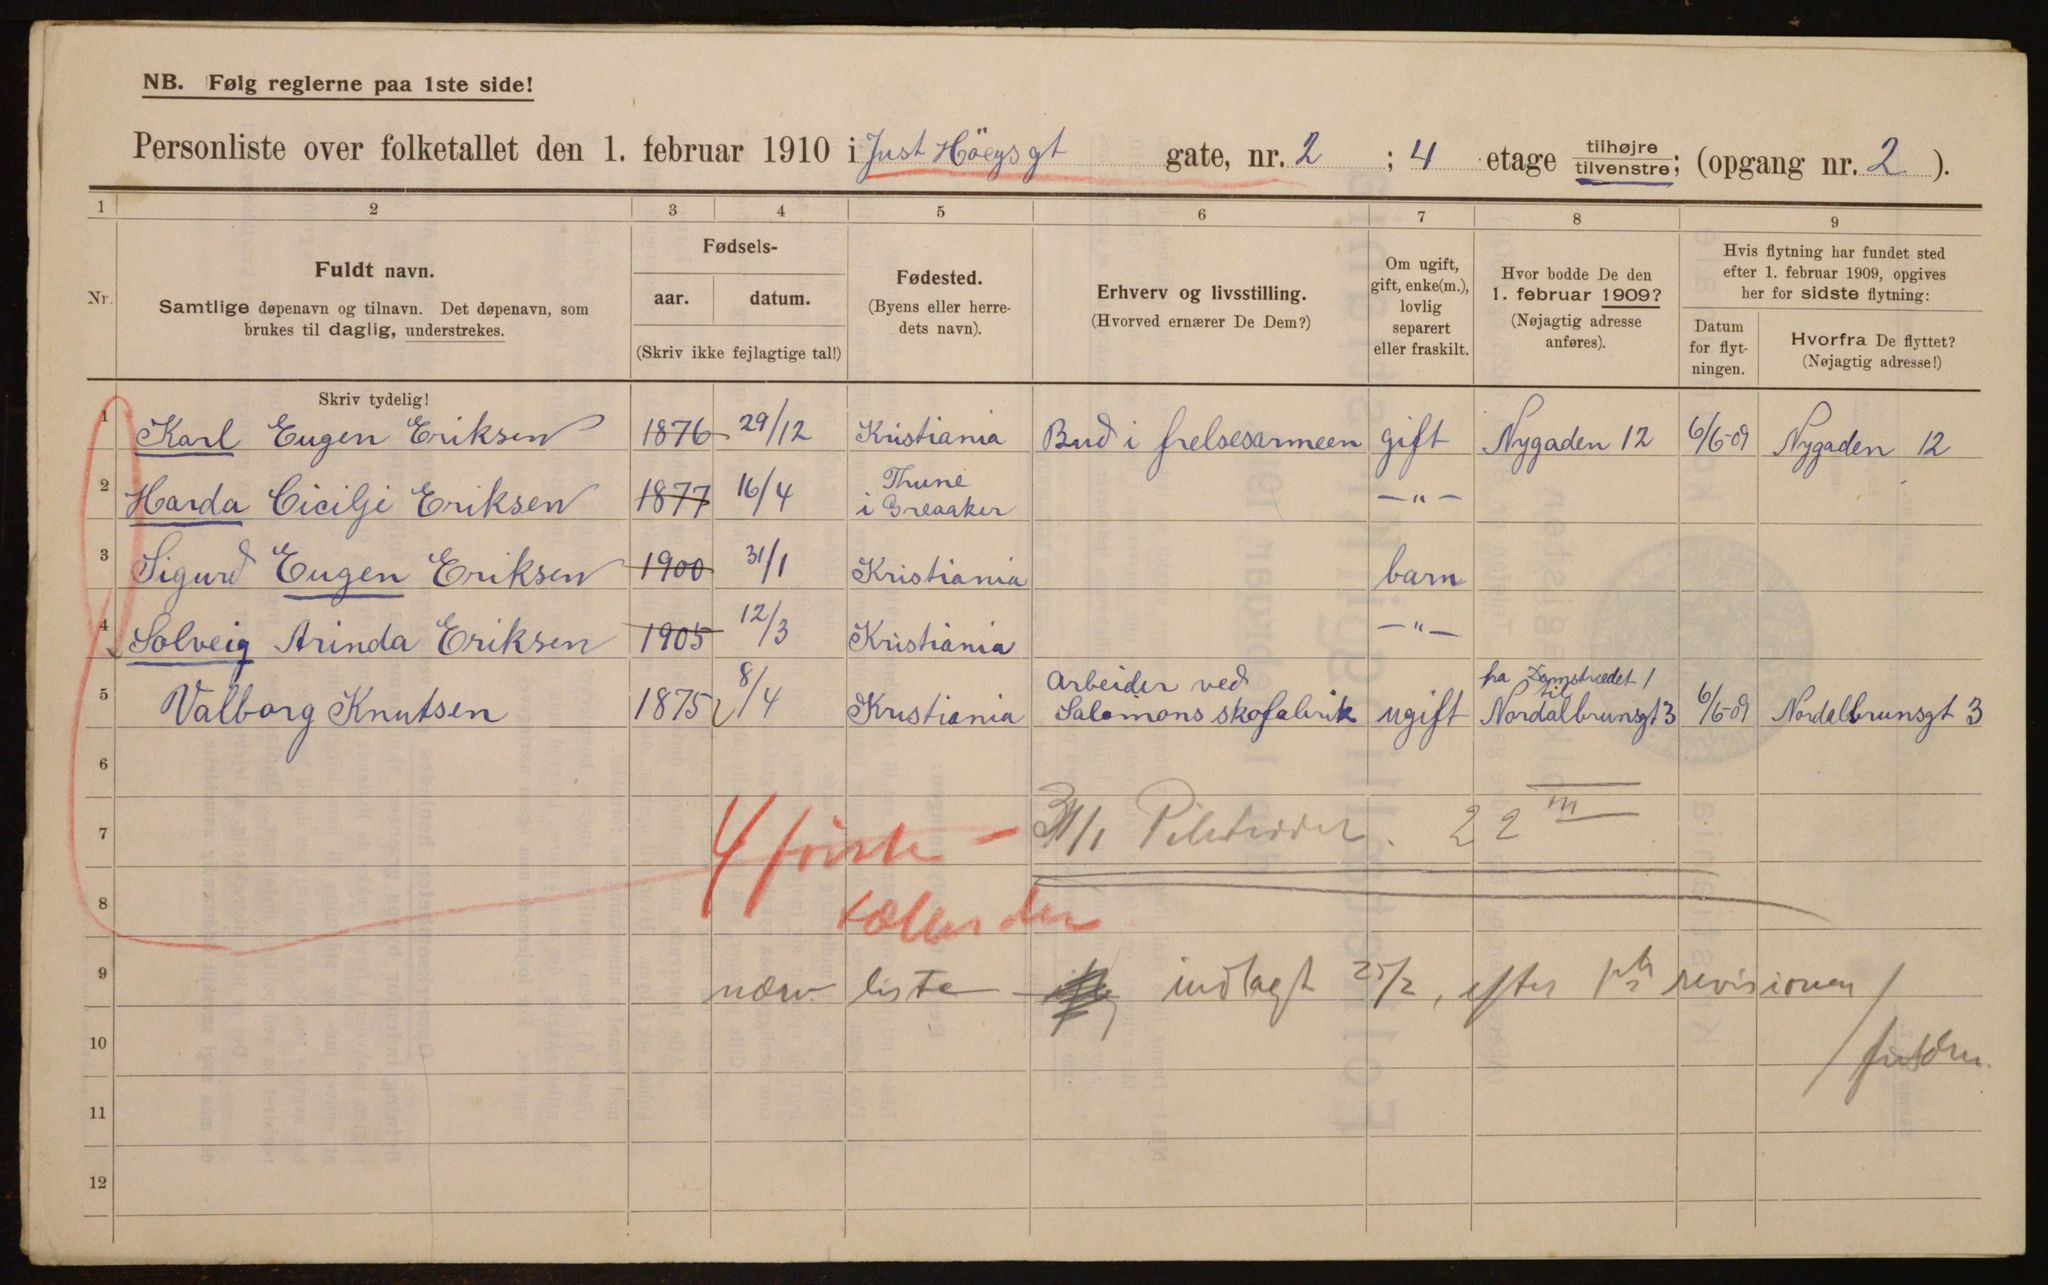 NB. Følg reglerne paa 1ste side!
Personliste over folketallet den 1. februar 1910 i Just Höegs gt gate, nr. 2 ; 4 etage tilhøjre tilvenstre; (opgang nr. 2 ).
1 2 3 4 5 6 7 8 9
Nr.
Fuldt navn.
Samtlige døpenavn og tilnavn. Det døpenavn, som
brukes til daglig, understrekes.
Fødsels-
aar. datum.
(Skriv ikke fejlagtige tal!)
Fødested.
(Byens eller herre-
dets navn).
Erhverv og livsstilling.
(Hvorved ernærer De Dem?)
Om ugift,
gift, enke(m.),
lovlig
separert
eller fraskilt.
Hvor bodde De den
1. februar 1909?
(Nøjagtig adresse
anføres).
Hvis flytning har fundet sted
efter 1. februar 1909, opgives
her for sidste flytning:
Datum
for flyt-
ningen.
Hvorfra De flyttet?
(Nøjagtig adresse!)
Skriv tydelig!
1 Karl Eugen Eriksen 1876 29/12 Kristiania Bud i frelsesarmeen gift Nygaden 12 6/6-09 Nygaden 12
2 Harda Cicilje Eriksen 1877 16/4 Thune i Greaaker —"—
3 Sigurd Eugen Eriksen 1900 31/1 Kristiania barn
4 Solveig Arinda Eriksen 1905 12/3 Kristiania —"—
5 Valborg Knutsen 1875 8/4 Kristiania Arbeider ved Salomons skofabrik ugift fra Domstrædet 1 til Nordalbrunsgt 3 6/6-09 Nordalbrunsgt 3
6
7 4 første 31/1 22
8
9 nærv. liste indlagt 25/2, efter revisionen
10
11
12